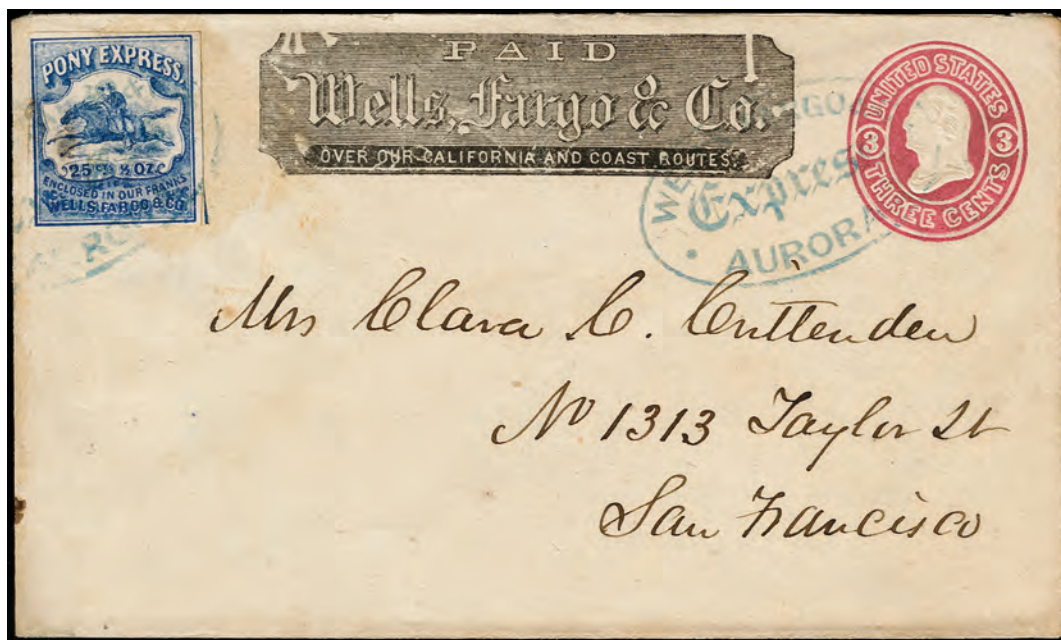 PONY EXPRESS.
25 CTS ½ OZ.
ENCLOSED IN OUR FRANKS
WELLS, FARGO & CO.
PAID
Wells, Fargo & Co.
OVER OUR CALIFORNIA AND COAST ROUTES.
UNITED STATES
3 3
THREE CENTS
Express
AURORA
Mrs Clara C. Crittenden
No 1313 Taylor St
San Francisco